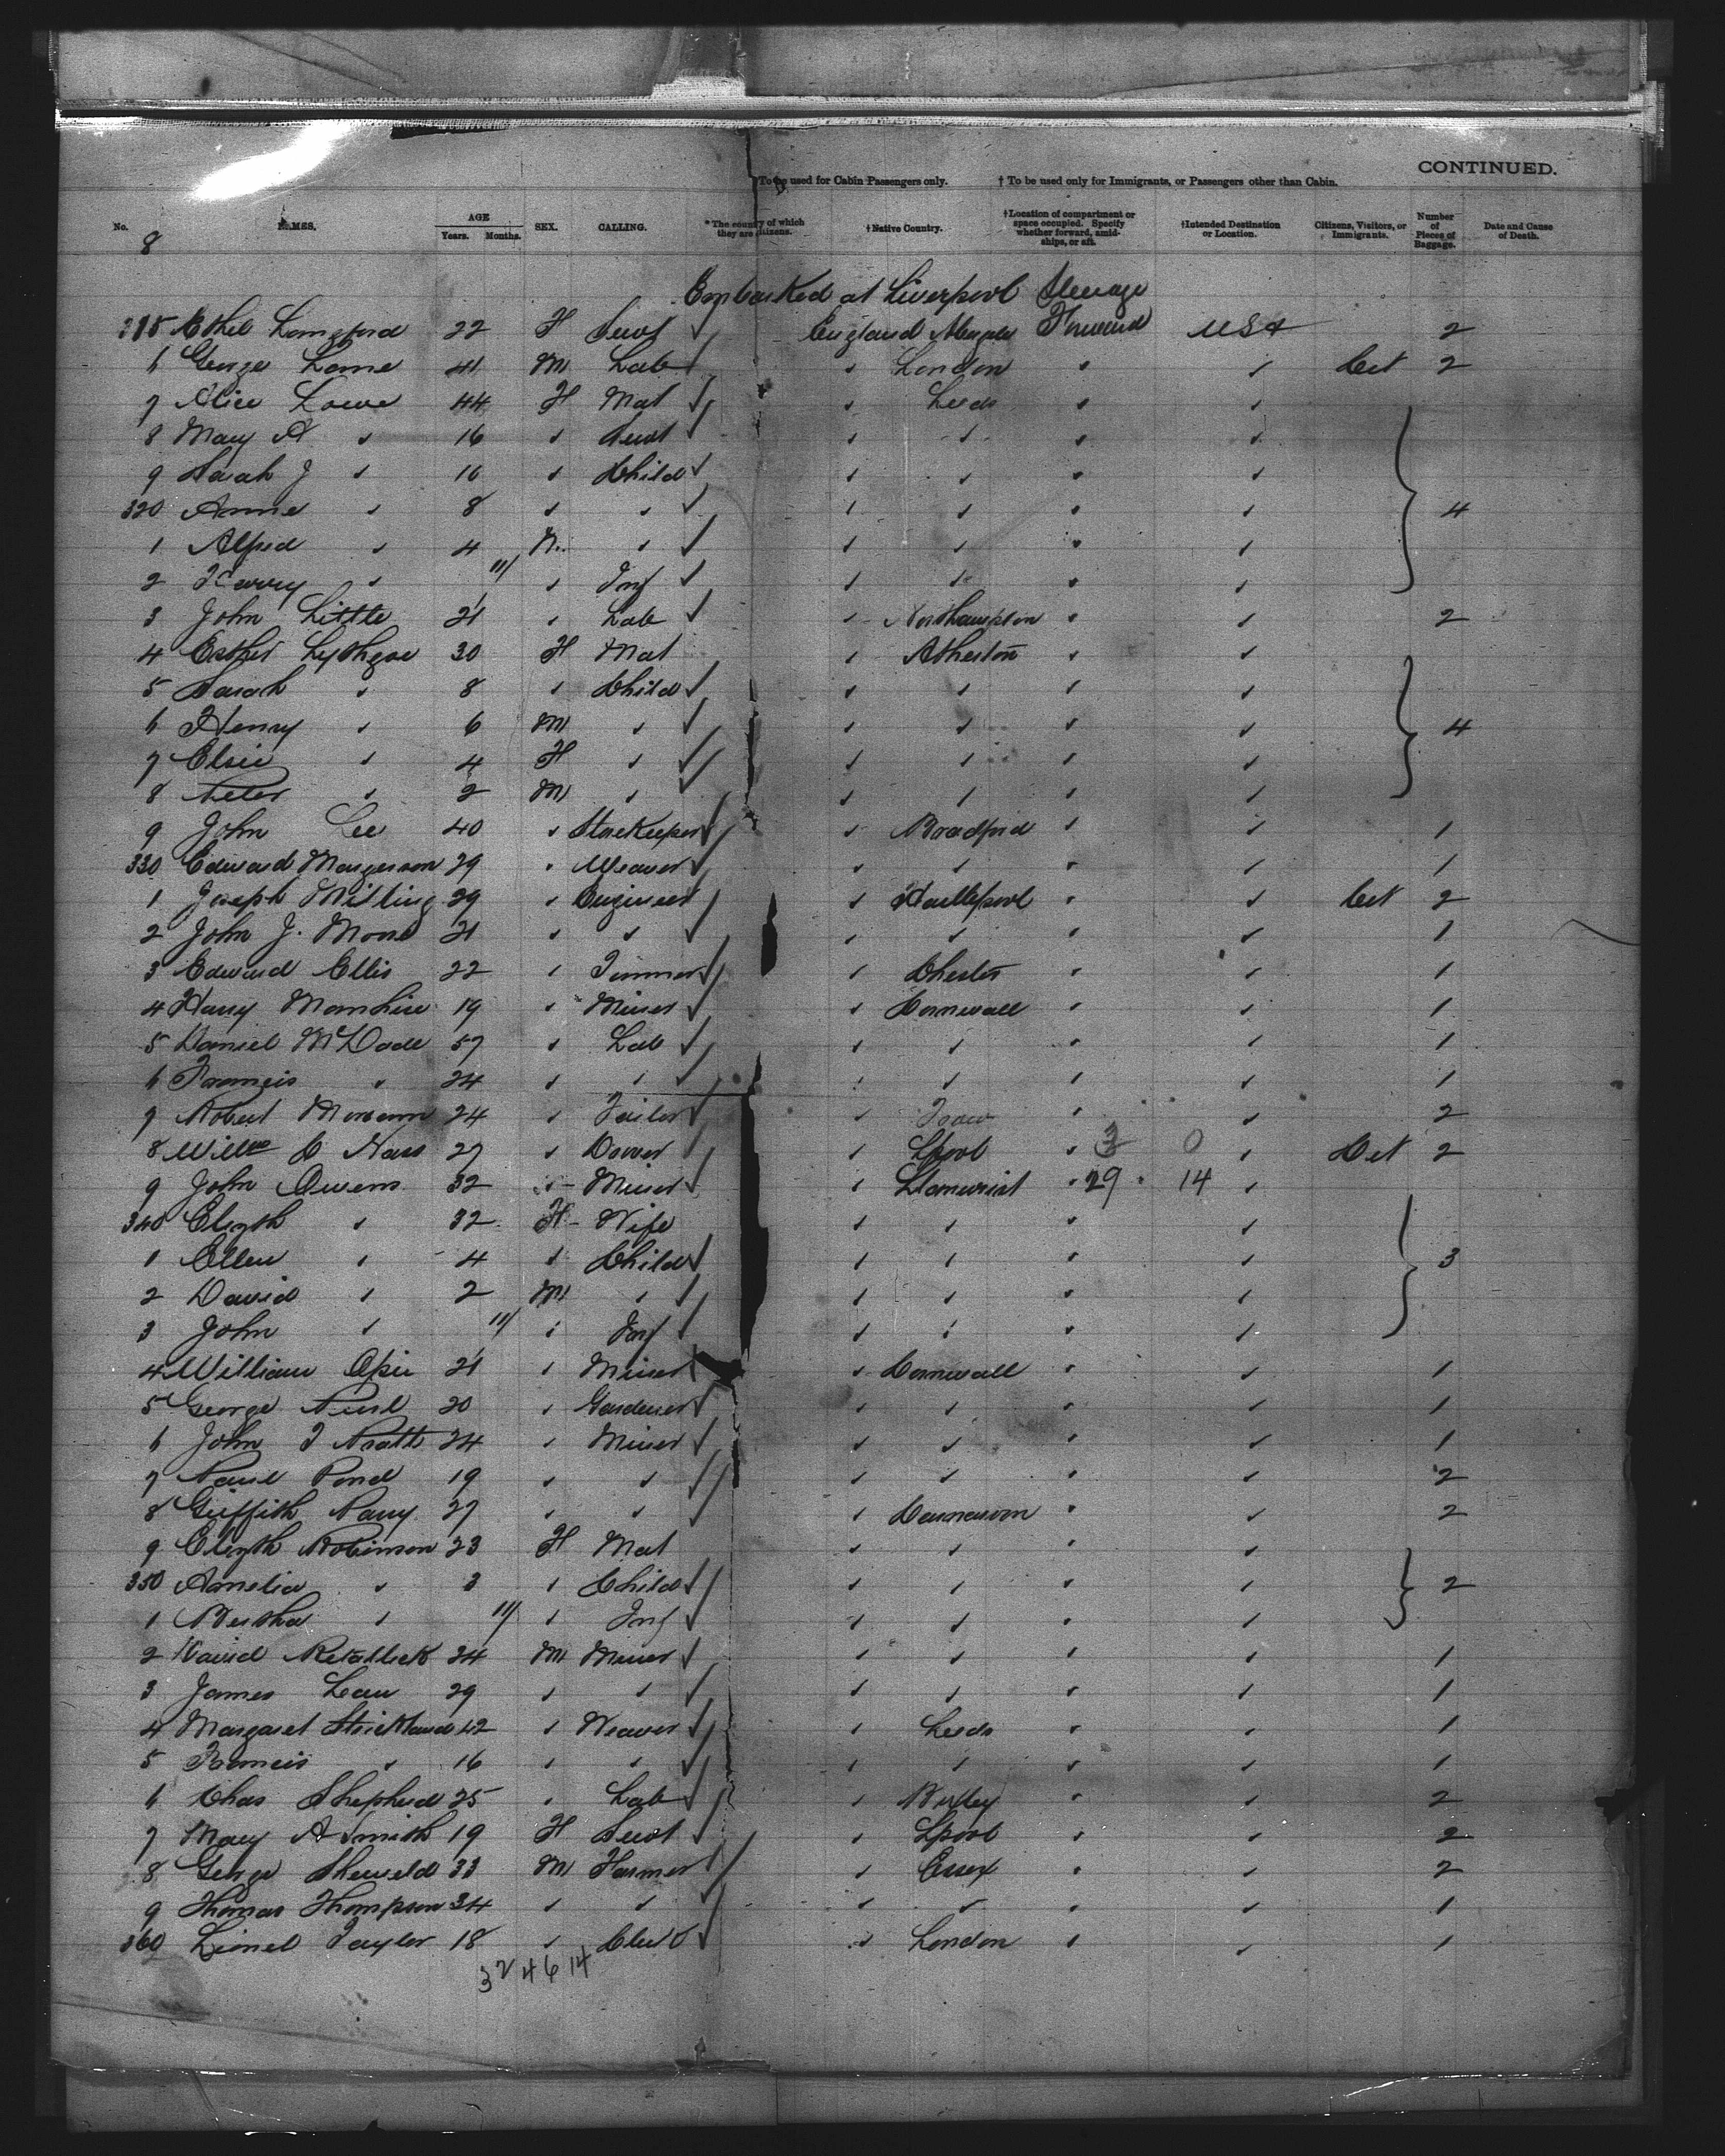 CONTINUED.
To be used for Cabin Passengers only. † To be used only for Immigrants, or Passengers other than Cabin.
No. NAMES. AGE Years. Months. SEX. CALLING. * The country of which they are citizens. † Native Country. † Location of compartment or space occupied. Specify whether forward, amidships, or aft. † Intended Destination or Location. Citizens, Visitors, or Immigrants. Number of Pieces of Baggage. Date and Cause of Death.
8
Embarked at Liverpool Steerage
315 Ethel Langford 22 F Servt ✓ England Forward USA 2
6 George Lame 41 M Lab ✓ " London " " Cit 2
7 Alice Lowe 44 F Mat ✓ " Leeds " "
8 Mary A " 16 " Servt ✓ " " " "
9 Sarah J " 10 " Child ✓ " " " "
320 Annie " 8 " " ✓ " " " " 4
1 Alfred " 4 M " ✓ " " " "
2 Harry " 11/ " Inf ✓ " " " "
3 John Little 21 " Lab ✓ " Northampton " " 2
4 Esther Lythgoe 30 F Mat " Atherton " "
5 Sarah " 8 " Child ✓ " " " "
6 Henry " 6 M " ✓ " " " " 4
7 Elsie " 4 F " ✓ " " " "
8 Peter " 2 M " " " " "
9 John Lee 40 " Storekeeper ✓ " Bradford " " 1
330 Edward Margerson 29 " Weaver ✓ " " " " 1
1 Joseph Milling 29 " Engineer ✓ " Hartlepool " " Cit 2
2 John J. Moore 21 " " ✓ " " " " 1
3 Edward Ellis 22 " ✓ " Chester " " 1
4 Harry Manhire 19 " Miner ✓ " Cornwall " " 1
5 Daniel McDade 57 " Lab ✓ " " " " 1
6 Francis " 24 " " ✓ " " " " 1
7 Robert 24 " Tailor ✓ " " " 2
8 Willm C Nass 27 " ✓ " Lpool " 3 0 " Cit 2
9 John Owens 32 " Miner ✓ " Llanwrist " 29 " 14 "
340 Elizth " 32 F Wife " " " "
1 Ellen " 4 " Child ✓ " " " " 3
2 David " 2 M " ✓ " " " "
3 John " 11/ " Inf ✓ " " " "
4 William Opie 21 " Miner ✓ " Cornwall " " 1
5 George 20 " Gardener ✓ " " " " 1
6 John T Pratt 24 " Miner ✓ " " " " 1
7 Paul Pond 19 " " ✓ " " " " 2
8 Griffith Parry 27 " " ✓ " Carnarvon " " 2
9 Elizth Robinson 23 F Mat " " " "
350 Amelia " 3 " Child ✓ " " " " 2
1 Bertha " 11/ " Inf ✓ " " " "
2 David Retallick 24 M Miner ✓ " " " " 1
3 James 29 " " ✓ " " " " 1
4 Margaret Strickland 42 " Weaver ✓ " Leeds " " 1
5 Francis " 16 " " ✓ " " " " 1
6 Chas Shepherd 25 " Lab ✓ " " " 2
7 Mary A Smith 19 F Servt ✓ " Lpool " " 2
8 George 33 M Farmer ✓ " Essex " " 2
9 Thomas Thompson 34 " " ✓ " " " " 1
360 Lionel Taylor 18 " Clerk ✓ " London " " 1
32 4 6 14